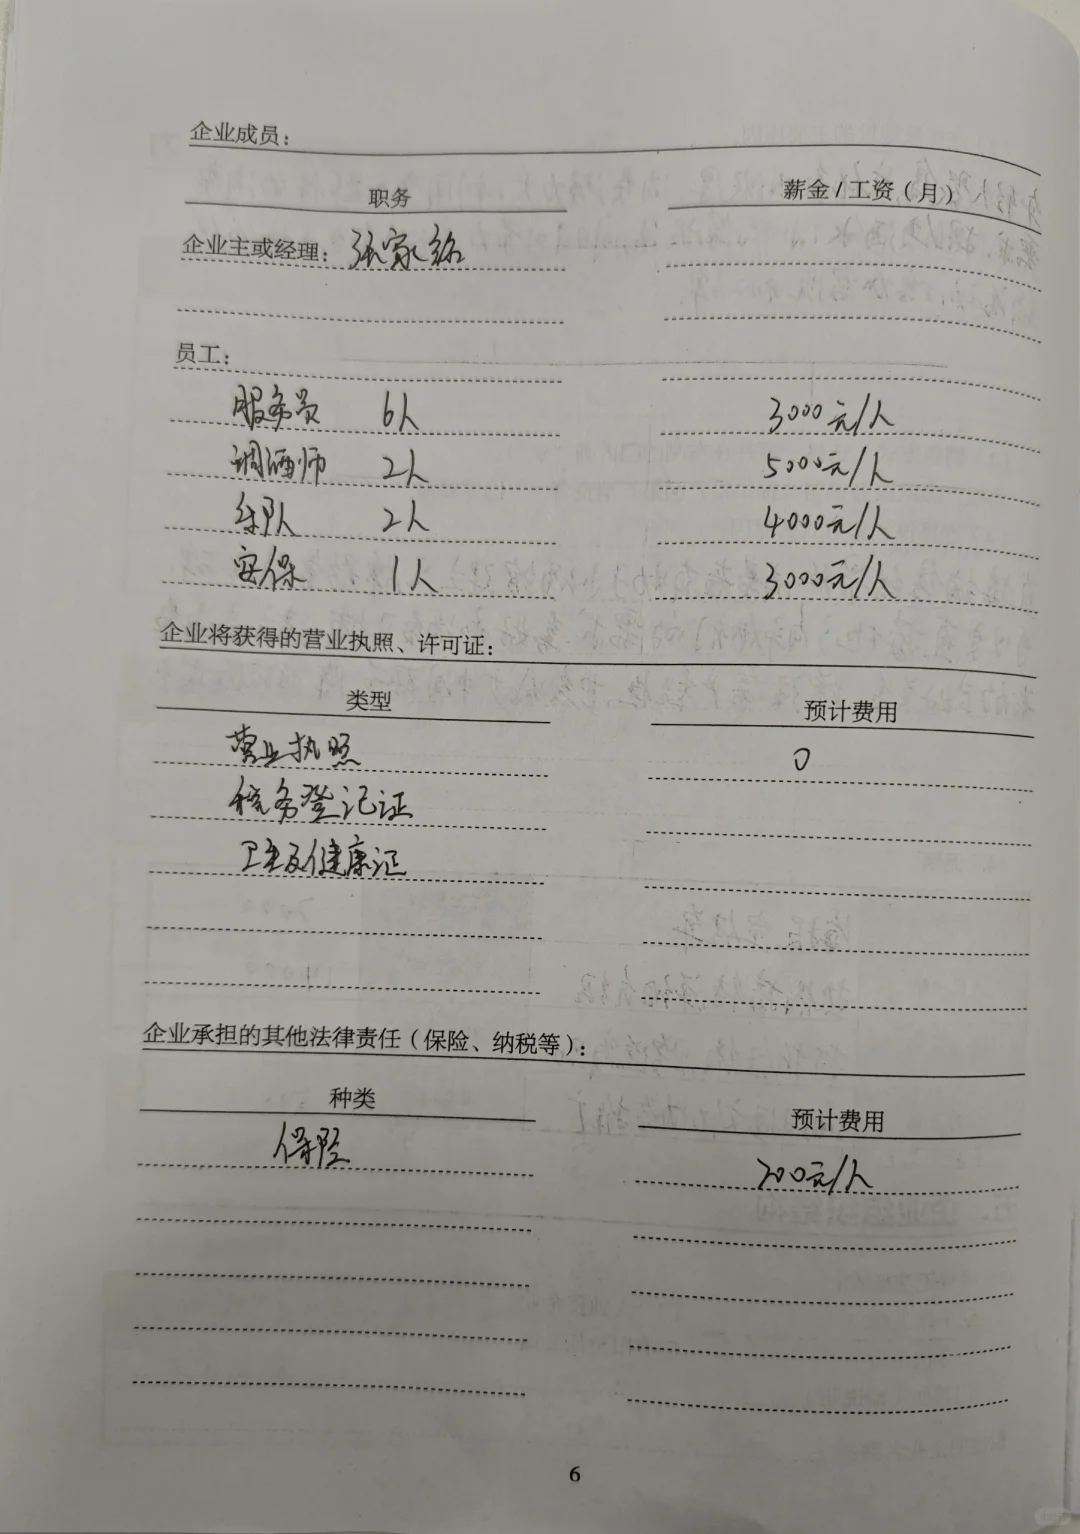 企业成员：
职务 薪金/工资（月）
企业主或经理：张家铭
员工：
服务员 6人 3000元/人
调酒师 2人 5000元/人
乐队 2人 4000元/人
安保 1人 3000元/人
企业将获得的营业执照、许可证：
类型 预计费用
营业执照 0
税务登记证
卫生及健康证
企业承担的其他法律责任（保险、纳税等）：
种类 预计费用
保险 200元/人
6